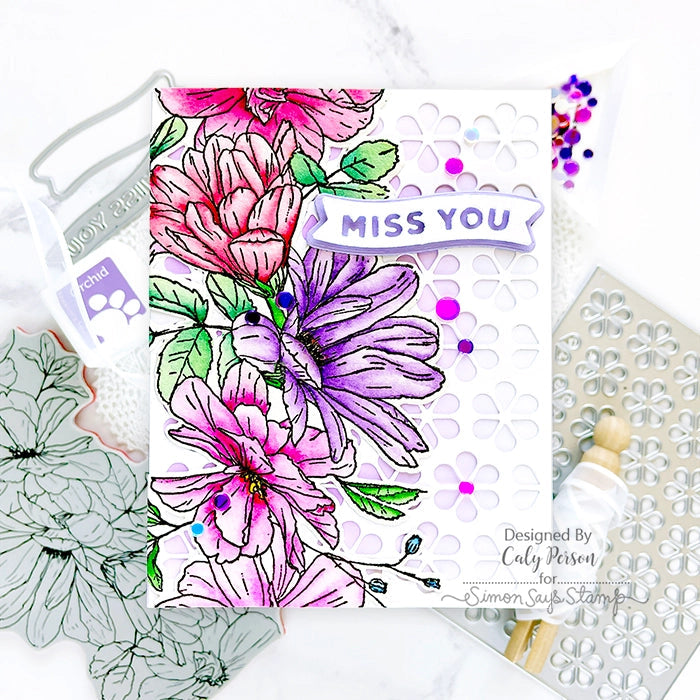 MISS YOU
MISS YOU
orchid
Designed By
Caly Person
for
Simon Says Stamp